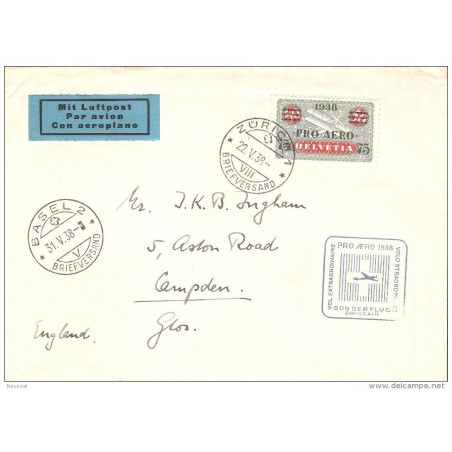 Mit Luftpost
Par avion
Con aeroplano
1938
PRO AERO
75 HELVETIA 75
ZÜRICH 1
22.V.38-
VIII
BRIEFVERSAND
BASEL 2
31.V.38-
V
BRIEFVERSAND
Mr. J.K.B. Ingham
5, Aston Road
Campden.
Glos.
England.
PRO AERO 1938
VOL EXTRAORDINAIRE
VOLO STRAORDINARIO
SONDERFLUG
SWISSAIR
delcampe.net